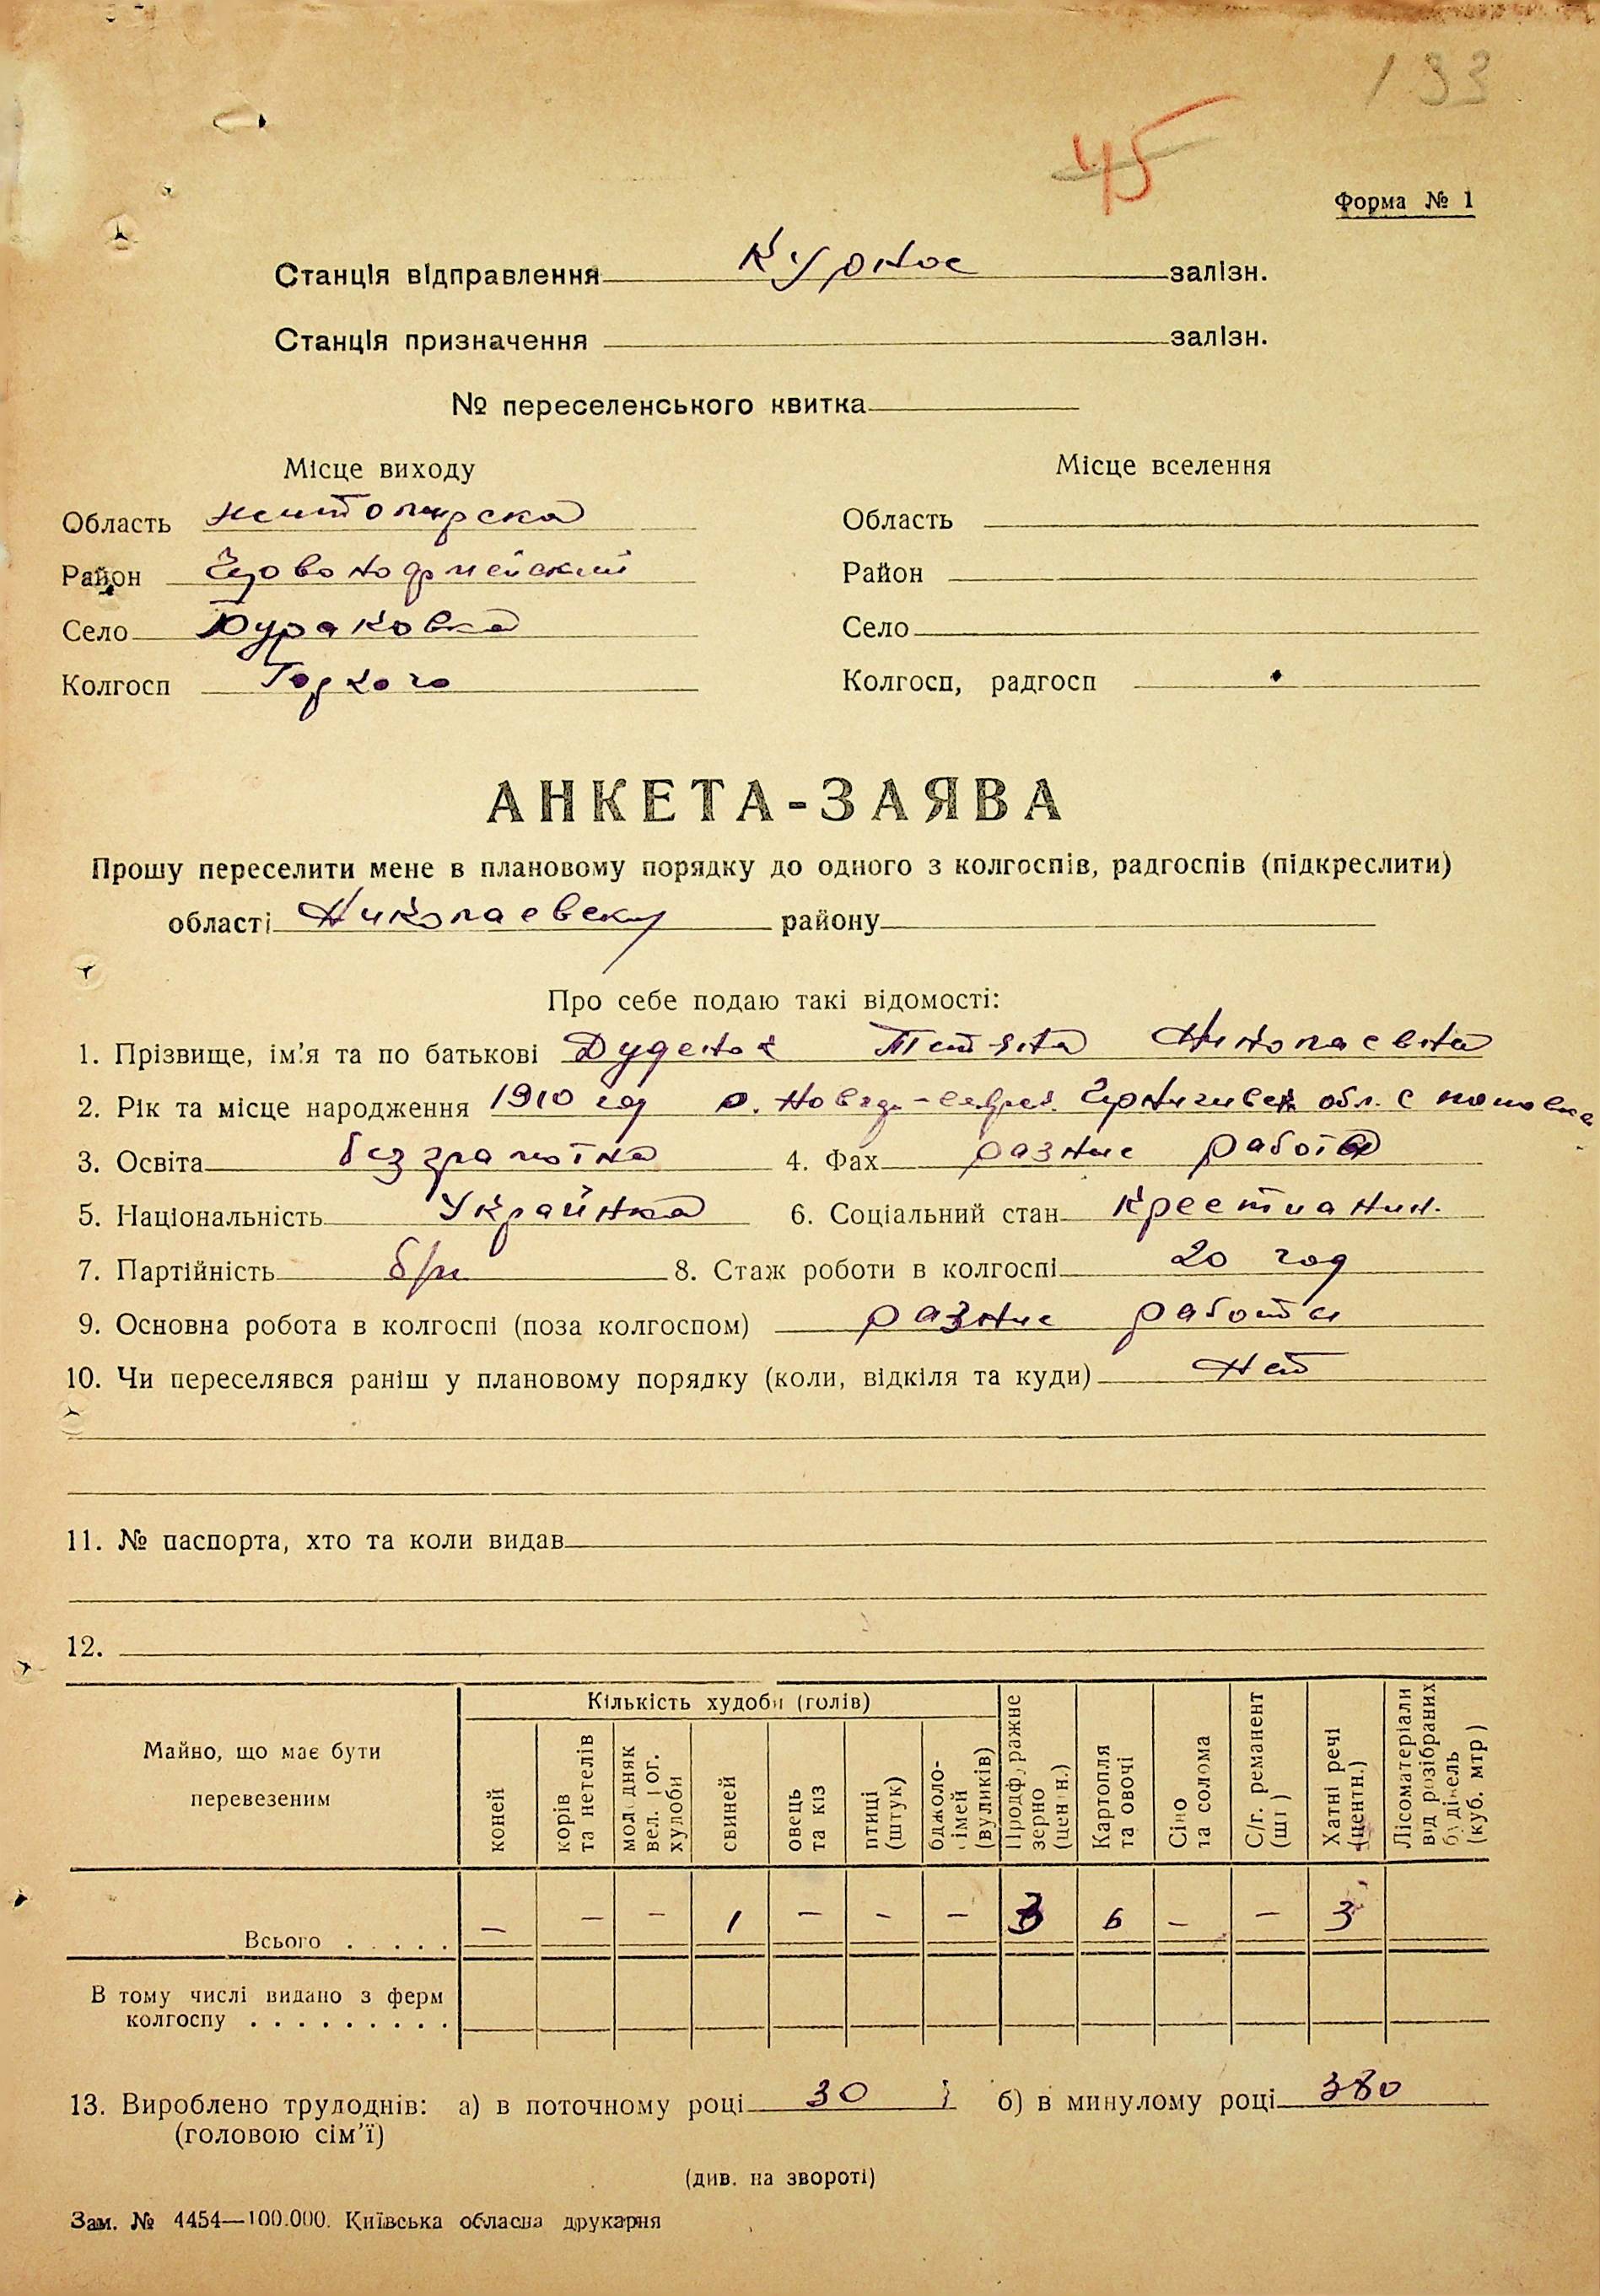 133
45
Форма № 1
Станція відправлення Курное залізн.
Станція призначення залізн.
№ переселенського квитка
Місце виходу Місце вселення
Область житомирска Область
Район Червоноармейский Район
Село Бураковка Село
Колгосп Горкого Колгосп, радгосп
АНКЕТА-ЗАЯВА
Прошу переселити мене в плановому порядку до одного з колгоспів, радгоспів (підкреслити)
області Николаевску району
Про себе подаю такі відомості:
1. Прізвище, ім'я та по батькові Дуденок Тетяна Николаевна
2. Рік та місце народження 1910 год обл. с
3. Освіта безграмотна 4. Фах разные работы
5. Національність Українка 6. Соціальний стан Крестианин.
7. Партійність б/п 8. Стаж роботи в колгоспі 20 год
9. Основна робота в колгоспі (поза колгоспом) разные работы
10. Чи переселявся раніш у плановому порядку (коли, відкіля та куди) Нет
11. № паспорта, хто та коли видав
12.
Майно, що має бути перевезеним
Кількість худоби (голів)
коней
корів та нетелів
молодняк вел. рог. худоби
свиней
овець та кіз
птиці (штук)
бджоло-сімей (вуликів)
Продфуражне зерно (центн.)
Картопля та овочі
Сіно та солома
С/г. реманент (шт.)
Хатні речі (центн.)
Лісоматеріали від розібраних будівель (куб. мтр)
Всього . . . . . — — — 1 — — — 3 6 — — 3
В тому числі видано з ферм
колгоспу . . . . . . . . .
13. Вироблено трудоднів: а) в поточному році 30 ; б) в минулому році 380
(головою сім'ї)
(див. на звороті)
Зам. № 4454—100.000. Київська обласна друкарня